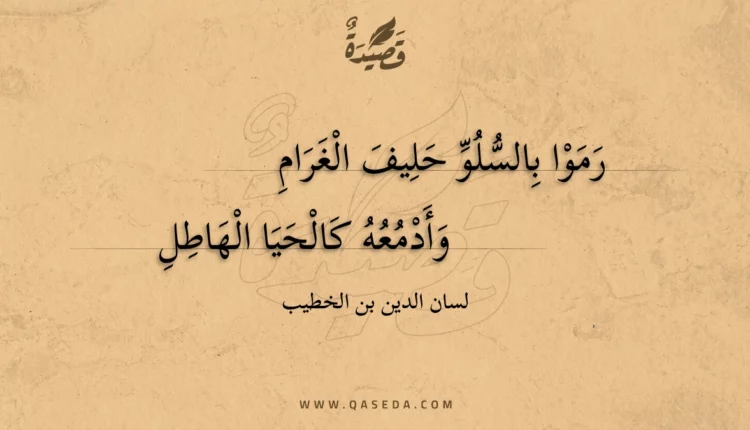 قَصِيدَةٌ
رَمَوْا بِالسُّلُوِّ حَلِيفَ الْغَرَامِ
وَأَدْمُعُهُ كَالْحَيَا الْهَاطِلِ
لسان الدين بن الخطيب
WWW.QASEDA.COM